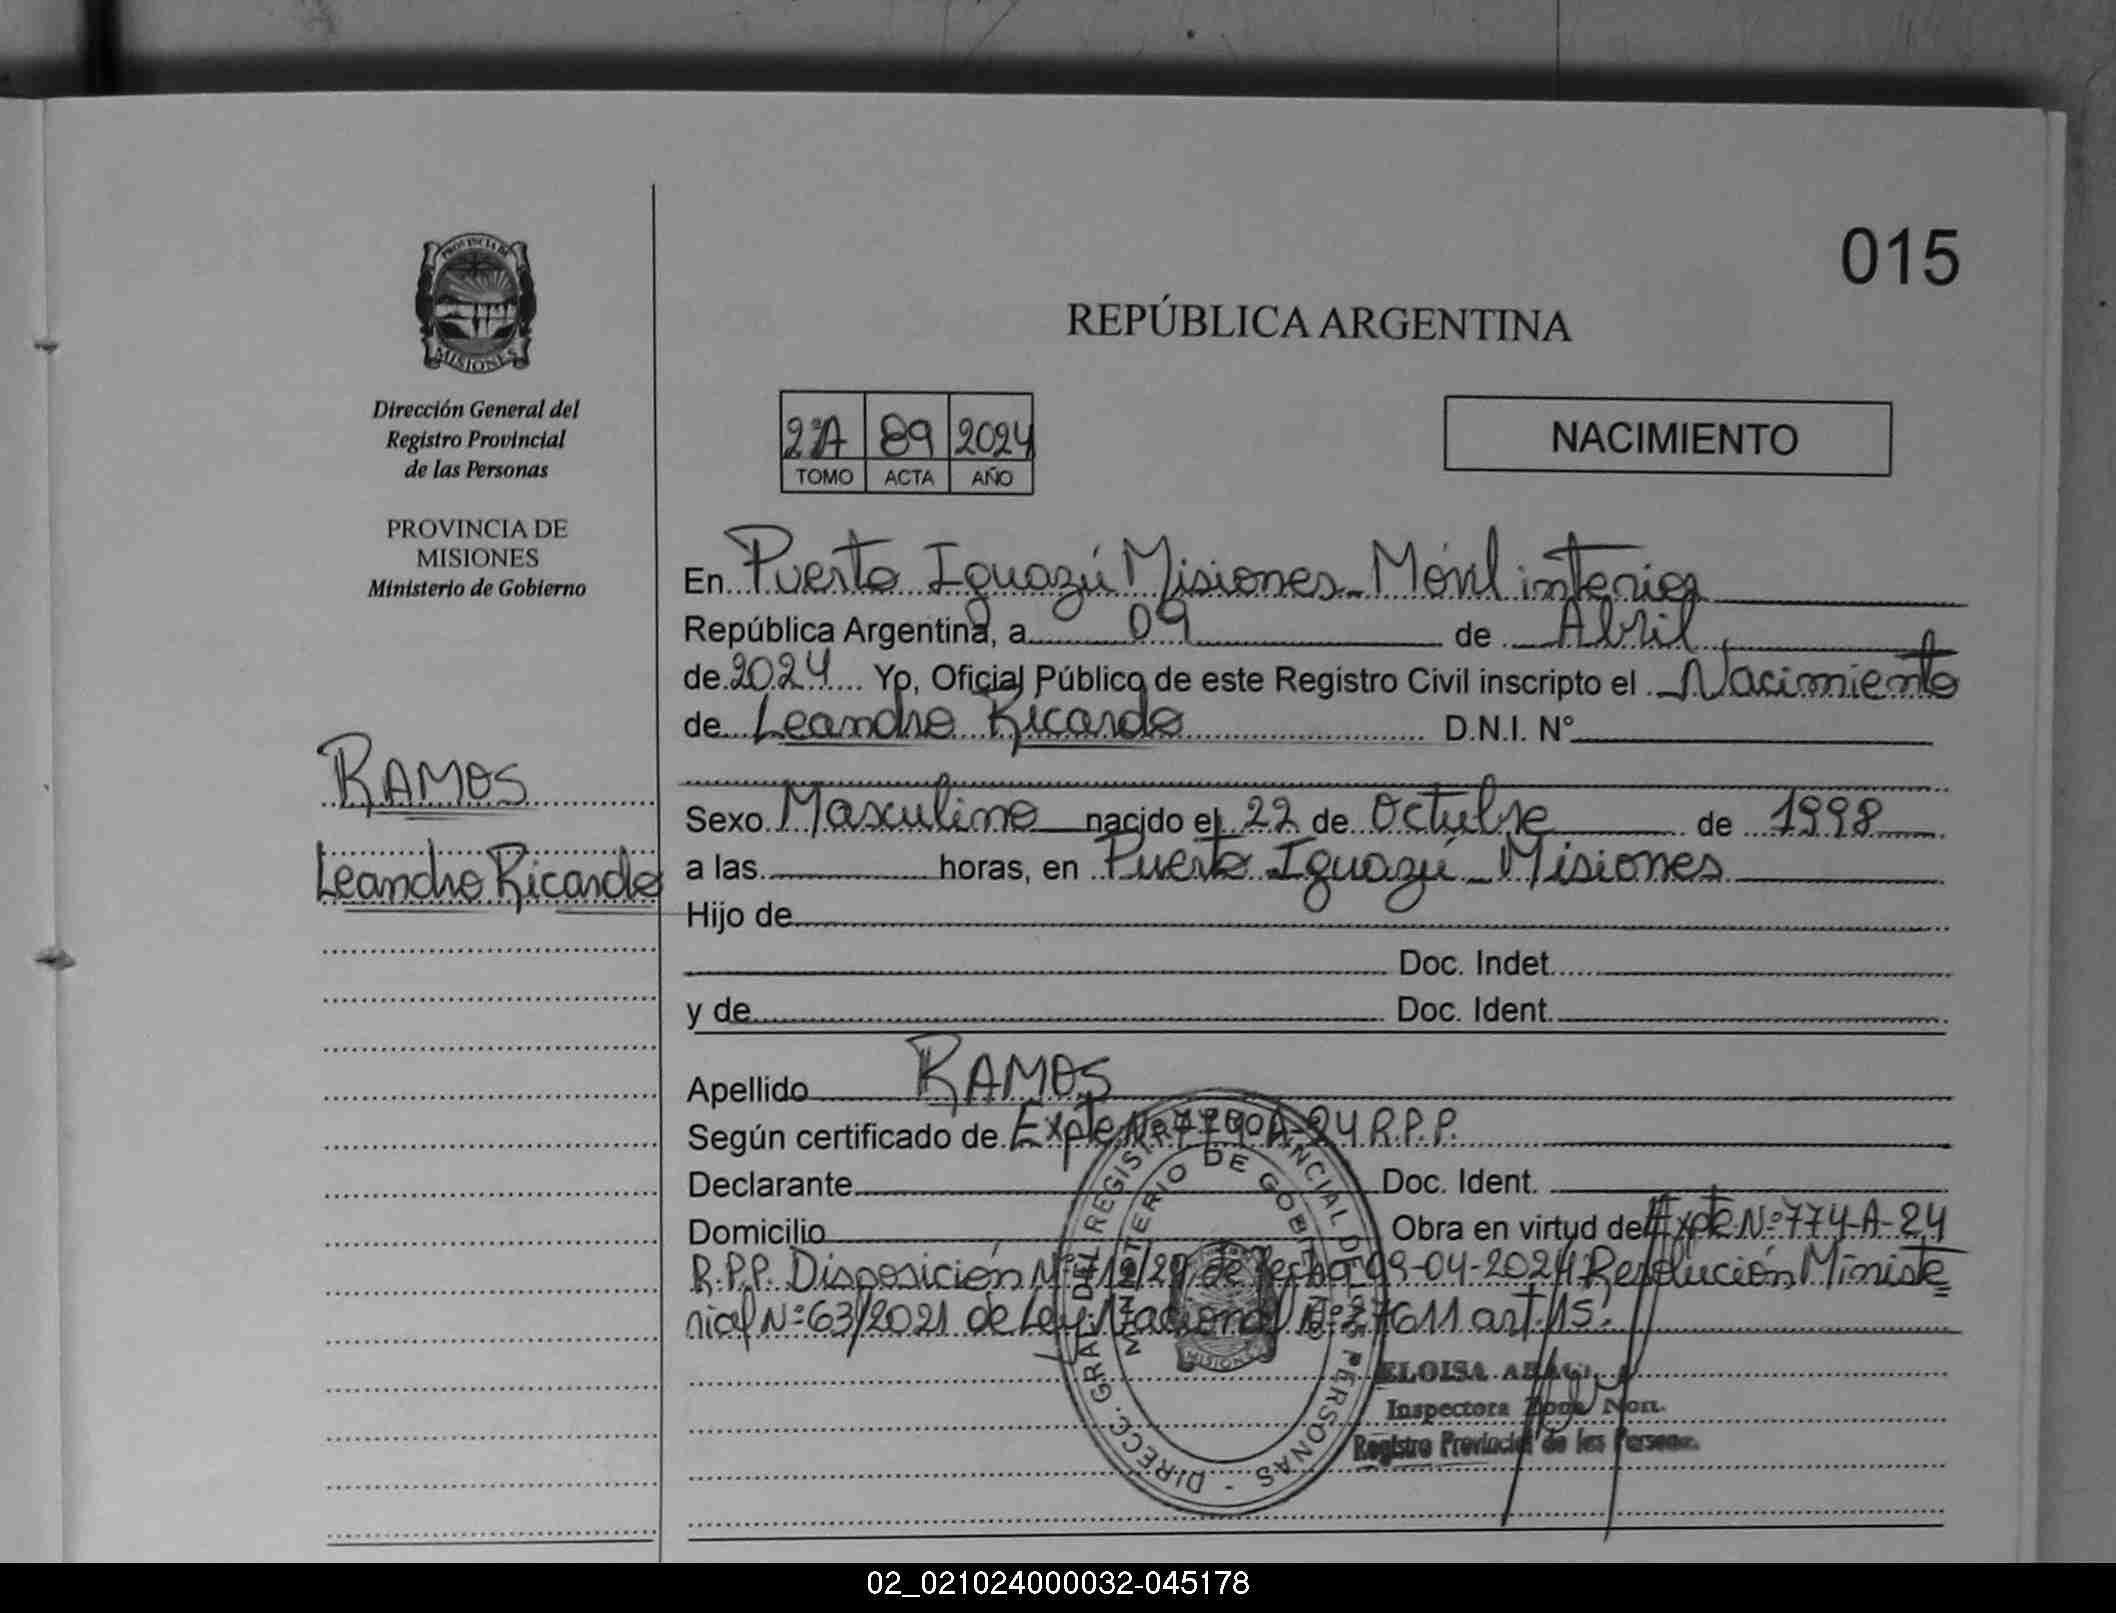 015
PROVINCIA DE
MISIONES
REPÚBLICA ARGENTINA
Dirección General del
Registro Provincial
de las Personas
PROVINCIA DE
MISIONES
Ministerio de Gobierno
2ºA 89 2024
TOMO ACTA AÑO
NACIMIENTO
En Puerto Iguazú Misiones - Móvil interior
República Argentina, a 09 de Abril
de 2024 Yo, Oficial Público de este Registro Civil inscripto el Nacimiento
de Leandro Ricardo D.N.I. N°
RAMOS
Leandro Ricardo
Sexo Masculino nacido el 22 de Octubre de 1998
a las horas, en Puerto Iguazú - Misiones
Hijo de
Doc. Indet.
y de Doc. Ident.
Apellido RAMOS
Según certificado de Expte Nº A-24 R.P.P.
Declarante Doc. Ident.
Domicilio Obra en virtud de Expte Nº 774-A-24
R.P.P. Disposición Nº de fecha 09-04-2024 Resolución Ministe
rial Nº 63/2021 de Ley Nacional Nº 27611 art. 15.
DIRECC. GRAL. DEL REGISTRO PROVINCIAL DE LAS PERSONAS
MINISTERIO DE GOBIERNO
MISIONES
ELOISA
Inspectora Zona
Registro Provincial de las Personas
02_021024000032-045178